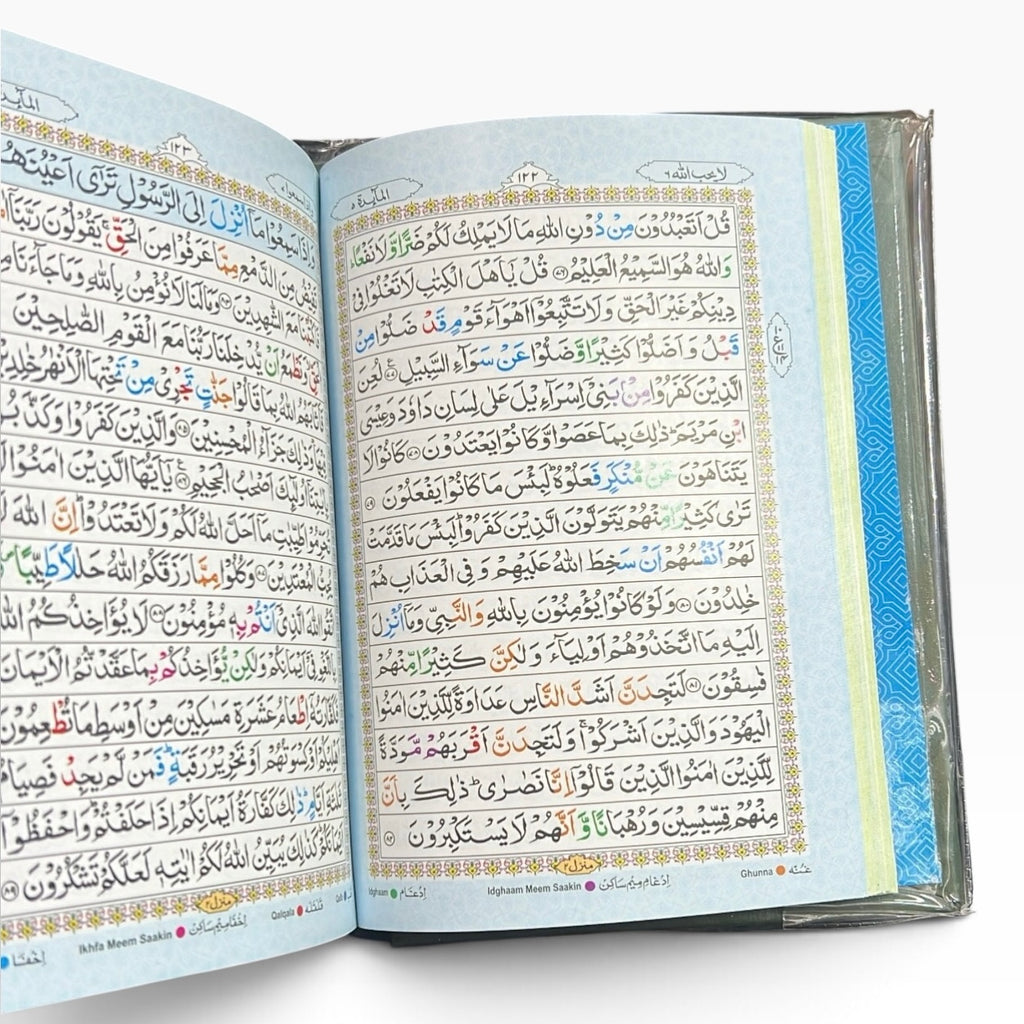 لا يحب الله ٦
١٢٢
المآىِٕدة ٥
قُلْ اَتَعْبُدُوْنَ مِنْ دُوْنِ اللّٰهِ مَا لَا يَمْلِكُ لَكُمْ ضَرًّا وَّلَا نَفْعًا ؕ
وَاللّٰهُ هُوَ السَّمِيْعُ الْعَلِيْمُ ﴿۷۶﴾ قُلْ يٰۤاَهْلَ الْكِتٰبِ لَا تَغْلُوْا فِيْ
دِيْنِكُمْ غَيْرَ الْحَقِّ وَلَا تَتَّبِعُوْۤا اَهْوَآءَ قَوْمٍ قَدْ ضَلُّوْا مِنْ
قَبْلُ وَاَضَلُّوْا كَثِيْرًا وَّضَلُّوْا عَنْ سَوَآءِ السَّبِيْلِ ﴿۷۷﴾ لُعِنَ
الَّذِيْنَ كَفَرُوْا مِنْۢ بَنِيْۤ اِسْرَآءِيْلَ عَلٰى لِسَانِ دَاوٗدَ وَعِيْسَى
ابْنِ مَرْيَمَ ؕ ذٰلِكَ بِمَا عَصَوْا وَّكَانُوْا يَعْتَدُوْنَ ﴿۷۸﴾ كَانُوْا لَا
يَتَنَاهَوْنَ عَنْ مُّنْكَرٍ فَعَلُوْهُ ؕ لَبِئْسَ مَا كَانُوْا يَفْعَلُوْنَ ﴿۷۹﴾
تَرٰى كَثِيْرًا مِّنْهُمْ يَتَوَلَّوْنَ الَّذِيْنَ كَفَرُوْا ؕ لَبِئْسَ مَا قَدَّمَتْ
لَهُمْ اَنْفُسُهُمْ اَنْ سَخِطَ اللّٰهُ عَلَيْهِمْ وَفِي الْعَذَابِ هُمْ
خٰلِدُوْنَ ﴿۸۰﴾ وَلَوْ كَانُوْا يُؤْمِنُوْنَ بِاللّٰهِ وَالنَّبِيِّ وَمَاۤ اُنْزِلَ
اِلَيْهِ مَا اتَّخَذُوْهُمْ اَوْلِيَآءَ وَلٰكِنَّ كَثِيْرًا مِّنْهُمْ
فٰسِقُوْنَ ﴿۸۱﴾ لَتَجِدَنَّ اَشَدَّ النَّاسِ عَدَاوَةً لِّلَّذِيْنَ اٰمَنُوا
الْيَهُوْدَ وَالَّذِيْنَ اَشْرَكُوْا ۚ وَلَتَجِدَنَّ اَقْرَبَهُمْ مَّوَدَّةً
لِّلَّذِيْنَ اٰمَنُوا الَّذِيْنَ قَالُوْۤا اِنَّا نَصٰرٰى ؕ ذٰلِكَ بِاَنَّ
مِنْهُمْ قِسِّيْسِيْنَ وَرُهْبَانًا وَّاَنَّهُمْ لَا يَسْتَكْبِرُوْنَ ﴿۸۲﴾
منزل ٢
Idghaam اِدْغَام Idghaam Meem Saakin اِدْغَام مِيْم سَاكِن Ghunna غُنَّه
١٢٣
وَاِذَا سَمِعُوْا مَاۤ اُنْزِلَ اِلَى الرَّسُوْلِ تَرٰۤى اَعْيُنَهُمْ
تَفِيْضُ مِنَ الدَّمْعِ مِمَّا عَرَفُوْا مِنَ الْحَقِّ ۚ يَقُوْلُوْنَ رَبَّنَاۤ
مَعَ الشّٰهِدِيْنَ ﴿۸۳﴾ وَمَا لَنَا لَا نُؤْمِنُ بِاللّٰهِ وَمَا جَآءَنَا مِنَ
وَنَطْمَعُ اَنْ يُّدْخِلَنَا رَبُّنَا مَعَ الْقَوْمِ الصّٰلِحِيْنَ
فَاَثَابَهُمُ اللّٰهُ بِمَا قَالُوْا جَنّٰتٍ تَجْرِيْ مِنْ تَحْتِهَا الْاَنْهٰرُ خٰلِدِيْنَ
وَذٰلِكَ جَزَآءُ الْمُحْسِنِيْنَ ﴿۸۵﴾ وَالَّذِيْنَ كَفَرُوْا وَكَذَّبُوْا
اُولٰٓىِٕكَ اَصْحٰبُ الْجَحِيْمِ ﴿۸۶﴾ يٰۤاَيُّهَا الَّذِيْنَ اٰمَنُوْا لَا
طَيِّبٰتِ مَاۤ اَحَلَّ اللّٰهُ لَكُمْ وَلَا تَعْتَدُوْا ؕ اِنَّ اللّٰهَ لَا
الْمُعْتَدِيْنَ ﴿۸۷﴾ وَكُلُوْا مِمَّا رَزَقَكُمُ اللّٰهُ حَلٰلًا طَيِّبًا
اللّٰهَ الَّذِيْۤ اَنْتُمْ بِهٖ مُؤْمِنُوْنَ ﴿۸۸﴾ لَا يُؤَاخِذُكُمُ اللّٰهُ
فِيْۤ اَيْمَانِكُمْ وَلٰكِنْ يُّؤَاخِذُكُمْ بِمَا عَقَّدْتُّمُ الْاَيْمَانَ
اِطْعَامُ عَشَرَةِ مَسٰكِيْنَ مِنْ اَوْسَطِ مَا تُطْعِمُوْنَ
اَهْلِيْكُمْ اَوْ كِسْوَتُهُمْ اَوْ تَحْرِيْرُ رَقَبَةٍ ؕ فَمَنْ لَّمْ يَجِدْ فَصِيَامُ
ثَلٰثَةِ اَيَّامٍ ؕ ذٰلِكَ كَفَّارَةُ اَيْمَانِكُمْ اِذَا حَلَفْتُمْ ؕ وَاحْفَظُوْۤا
اَيْمَانَكُمْ ؕ كَذٰلِكَ يُبَيِّنُ اللّٰهُ لَكُمْ اٰيٰتِهٖ لَعَلَّكُمْ تَشْكُرُوْنَ ﴿۸۹﴾
منزل ٢
اِخْفَا Ikhfa Meem Saakin اِخْفَا مِيْم سَاكِن Qalqala قَلْقَلَه